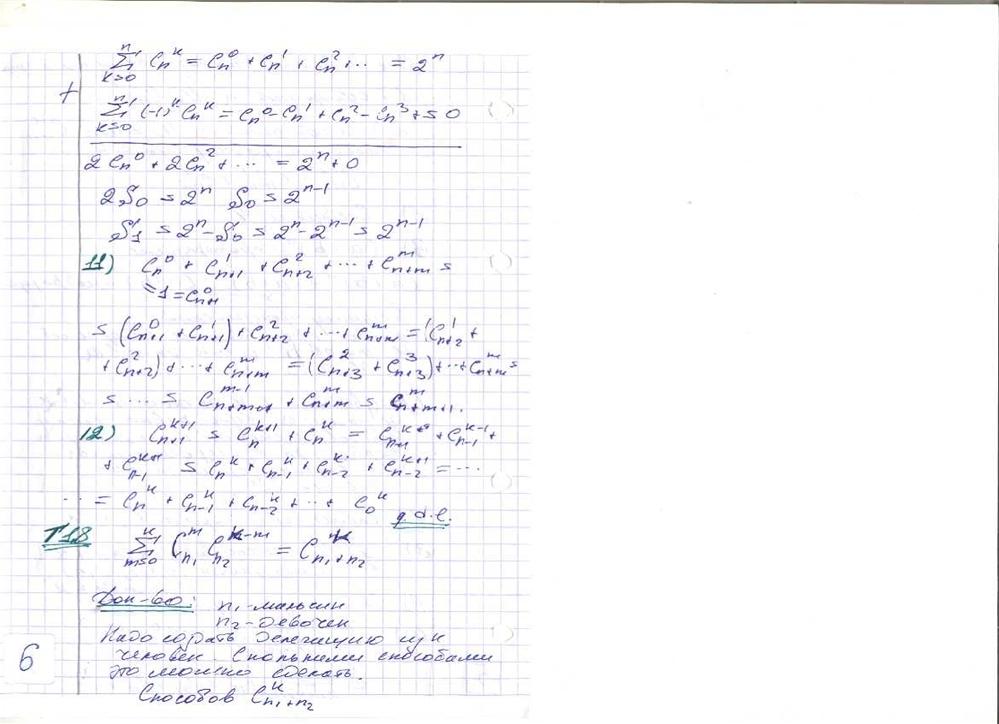 \sum_{k=0}^{n} C_n^k = C_n^0 + C_n^1 + C_n^2 + ... = 2^n
+
\sum_{k=0}^{n} (-1)^k C_n^k = C_n^0 - C_n^1 + C_n^2 - C_n^3 + = 0
2C_n^0 + 2C_n^2 + ... = 2^n + 0
2S_0 = 2^n S_0 = 2^{n-1}
S_1 = 2^n - S_0 = 2^n - 2^{n-1} = 2^{n-1}
11) C_n^0 + C_{n+1}^1 + C_{n+2}^2 + ... + C_{n+m}^m =
=1=C_{n+1}^0
= (C_{n+1}^0 + C_{n+1}^1) + C_{n+2}^2 + ... + C_{n+m}^m = (C_{n+2}^1 +
+ C_{n+2}^2) + ... + C_{n+m}^m = (C_{n+3}^2 + C_{n+3}^3) + ... + C_{n+m}^m =
= ... = C_{n+m}^{m-1} + C_{n+m}^m = C_{n+m+1}^m.
12) C_{n+1}^{k+1} = C_n^{k+1} + C_n^k = C_n^k + C_{n-1}^{k-1} +
+ C_{n-1}^{k+1} = C_n^k + C_{n-1}^k + C_{n-2}^k + C_{n-2}^{k+1} = ...
... = C_n^k + C_{n-1}^k + C_{n-2}^k + ... + C_0^k q.d.e.
T18 \sum_{m=0}^{k} C_{n_1}^m C_{n_2}^{k-m} = C_{n_1+n_2}^k
Док-во: n_1 - мальчик
n_2 - девочек
Надо собрать делегацию из к
человек. Сколькими способами
это можно сделать.
Способов C_{n_1+n_2}^k
6